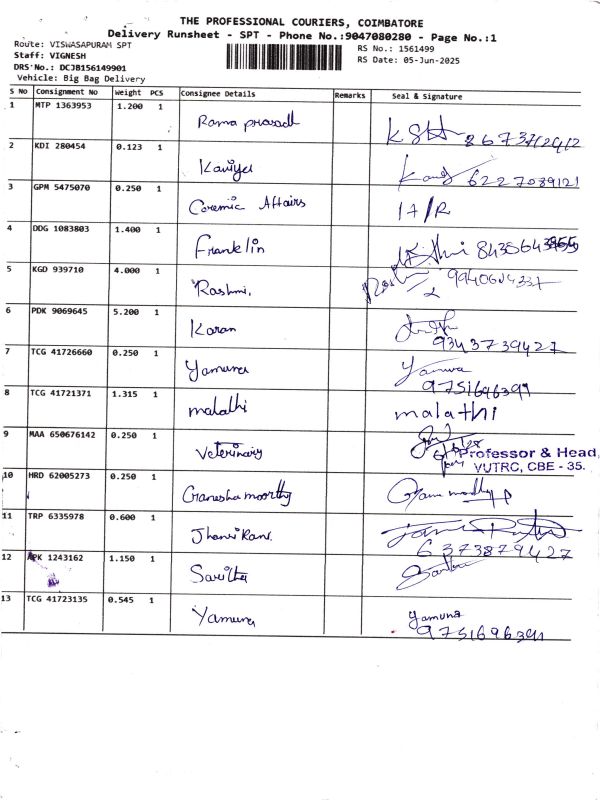 THE PROFESSIONAL COURIERS, COIMBATORE
Delivery Runsheet - SPT - Phone No.:9047080280 - Page No.:1
Route: VISWASAPURAM SPT
Staff: VIGNESH
DRS No.: DCJB156149901
Vehicle: Big Bag Delivery
RS No.: 1561499
RS Date: 05-Jun-2025
S No Consignment No Weight PCS Consignee Details Remarks Seal & Signature
1 MTP 1363953 1.200 1 Rama prasadh
2 KDI 280454 0.123 1 Kaviya 6227089121
3 GPM 5475070 0.250 1 Coremic Affairs
4 DDG 1083803 1.400 1 Franklin
5 KGD 939710 4.000 1 Rashmi.
6 PDK 9069645 5.200 1 Karan 9343739427
7 TCG 41726660 0.250 1 Yamuna Yamuna
9751696391
8 TCG 41721371 1.315 1 malathi malathi
9 MAA 650676142 0.250 1 Veterinary Professor & Head,
VUTRC, CBE - 35.
10 HRD 62005273 0.250 1 Ganesha moorthy
11 TRP 6335978 0.600 1 Jhansi Rani. 6373879427
12 APK 1243162 1.150 1 Saritha
13 TCG 41723135 0.545 1 Yamuna Yamuna
9751696391